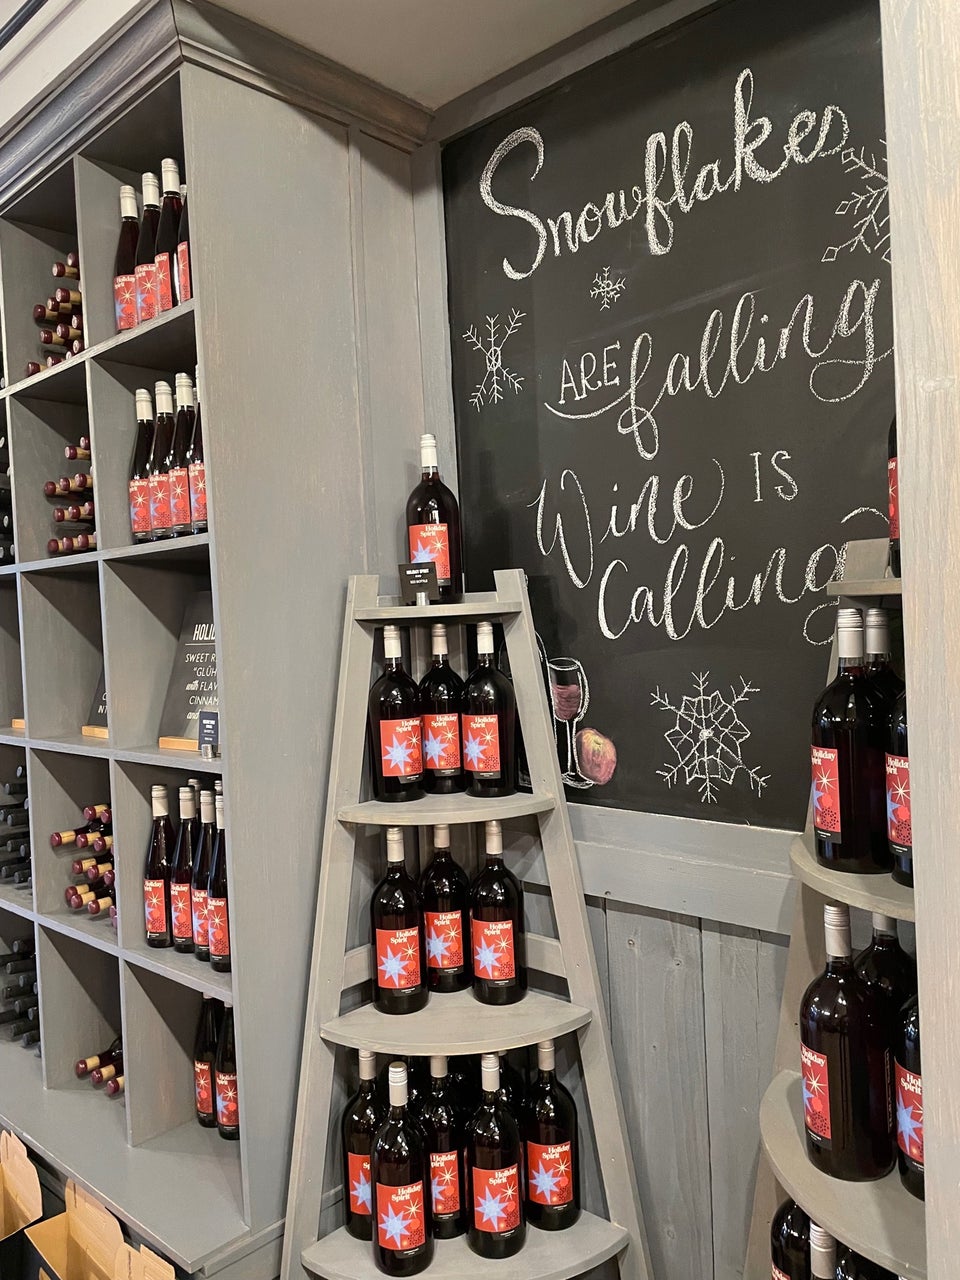 Snowflakes
ARE falling
Wine IS
Calling
HOLIDAY SPIRIT
RED BOTTLE
HOLID
SWEET R
"GLÜH
with FLAV
CINNAM
and
Holiday
Spirit
Holiday
Spirit
Holiday
Spirit
Holiday
Spirit
Holiday
Spirit
Holiday
Spirit
Holiday
Spirit
Holiday
Spirit
Holiday
Spirit
Holiday
Spirit